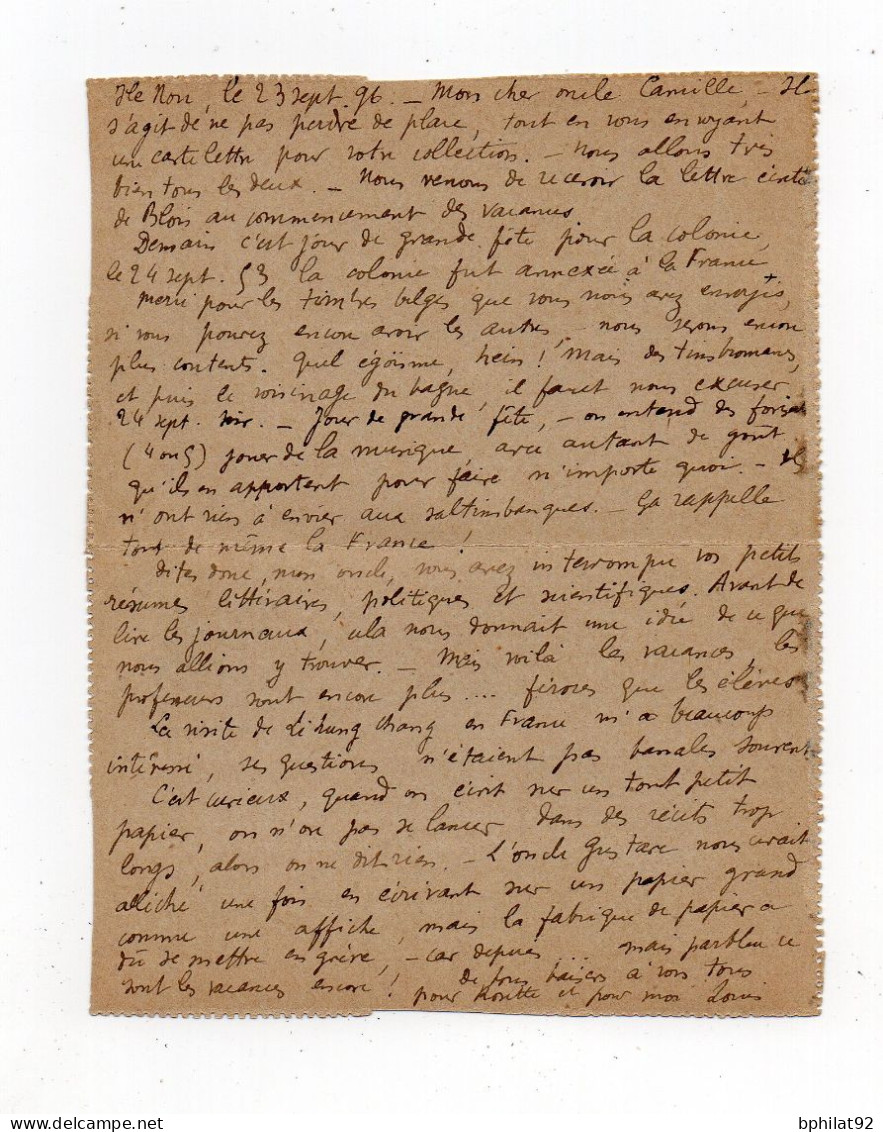 Ile Nou, le 23 sept. 96. — Mon cher oncle Camille, — Il
s'agit de ne pas perdre de place, tout en vous envoyant
une carte lettre pour votre collection. — Nous allons très
bien tous les deux. — Nous venons de recevoir la lettre écrite
de Blois au commencement des vacances.
Demain c'est jour de grande fête pour la colonie,
le 24 sept. 53 la colonie fut annexée à la France
Merci pour les timbres belges que vous nous avez envoyés,
si vous pouvez encore avoir les autres, nous serons encore
plus contents. Quel égoïsme, hein! Mais des timbromanes,
et puis le voisinage du bagne, il faut nous excuser.
24 sept. soir. — Jour de grande fête, — on entend des forçats
(4 ou 5) jouer de la musique, avec autant de goût
qu'ils en apportent pour faire n'importe quoi. — Ils
n'ont rien à envier aux saltimbanques. — Ça rappelle
tout de même la France!
Dites donc, mon oncle, vous avez interrompu vos petits
résumés littéraires, politiques et scientifiques. Avant de
lire les journaux, cela nous donnait une idée de ce que
nous allions y trouver. — Mais voilà les vacances, les
professeurs sont encore plus .... féroces que les élèves
La visite de Li hung chang en France m'a beaucoup
intéressé, ses questions n'étaient pas banales souvent.
C'est curieux, quand on écrit sur un tout petit
papier, on n'ose pas se lancer dans des récits trop
longs, alors on ne dit rien. — L'oncle Gustave nous avait
alléché une fois en écrivant sur un papier grand
comme une affiche, mais la fabrique de papier a
dû se mettre en grève, — car depuis ... mais parbleu ce
sont les vacances encore! de bons baisers à vous tous
pour et pour moi Louis
bphilat92